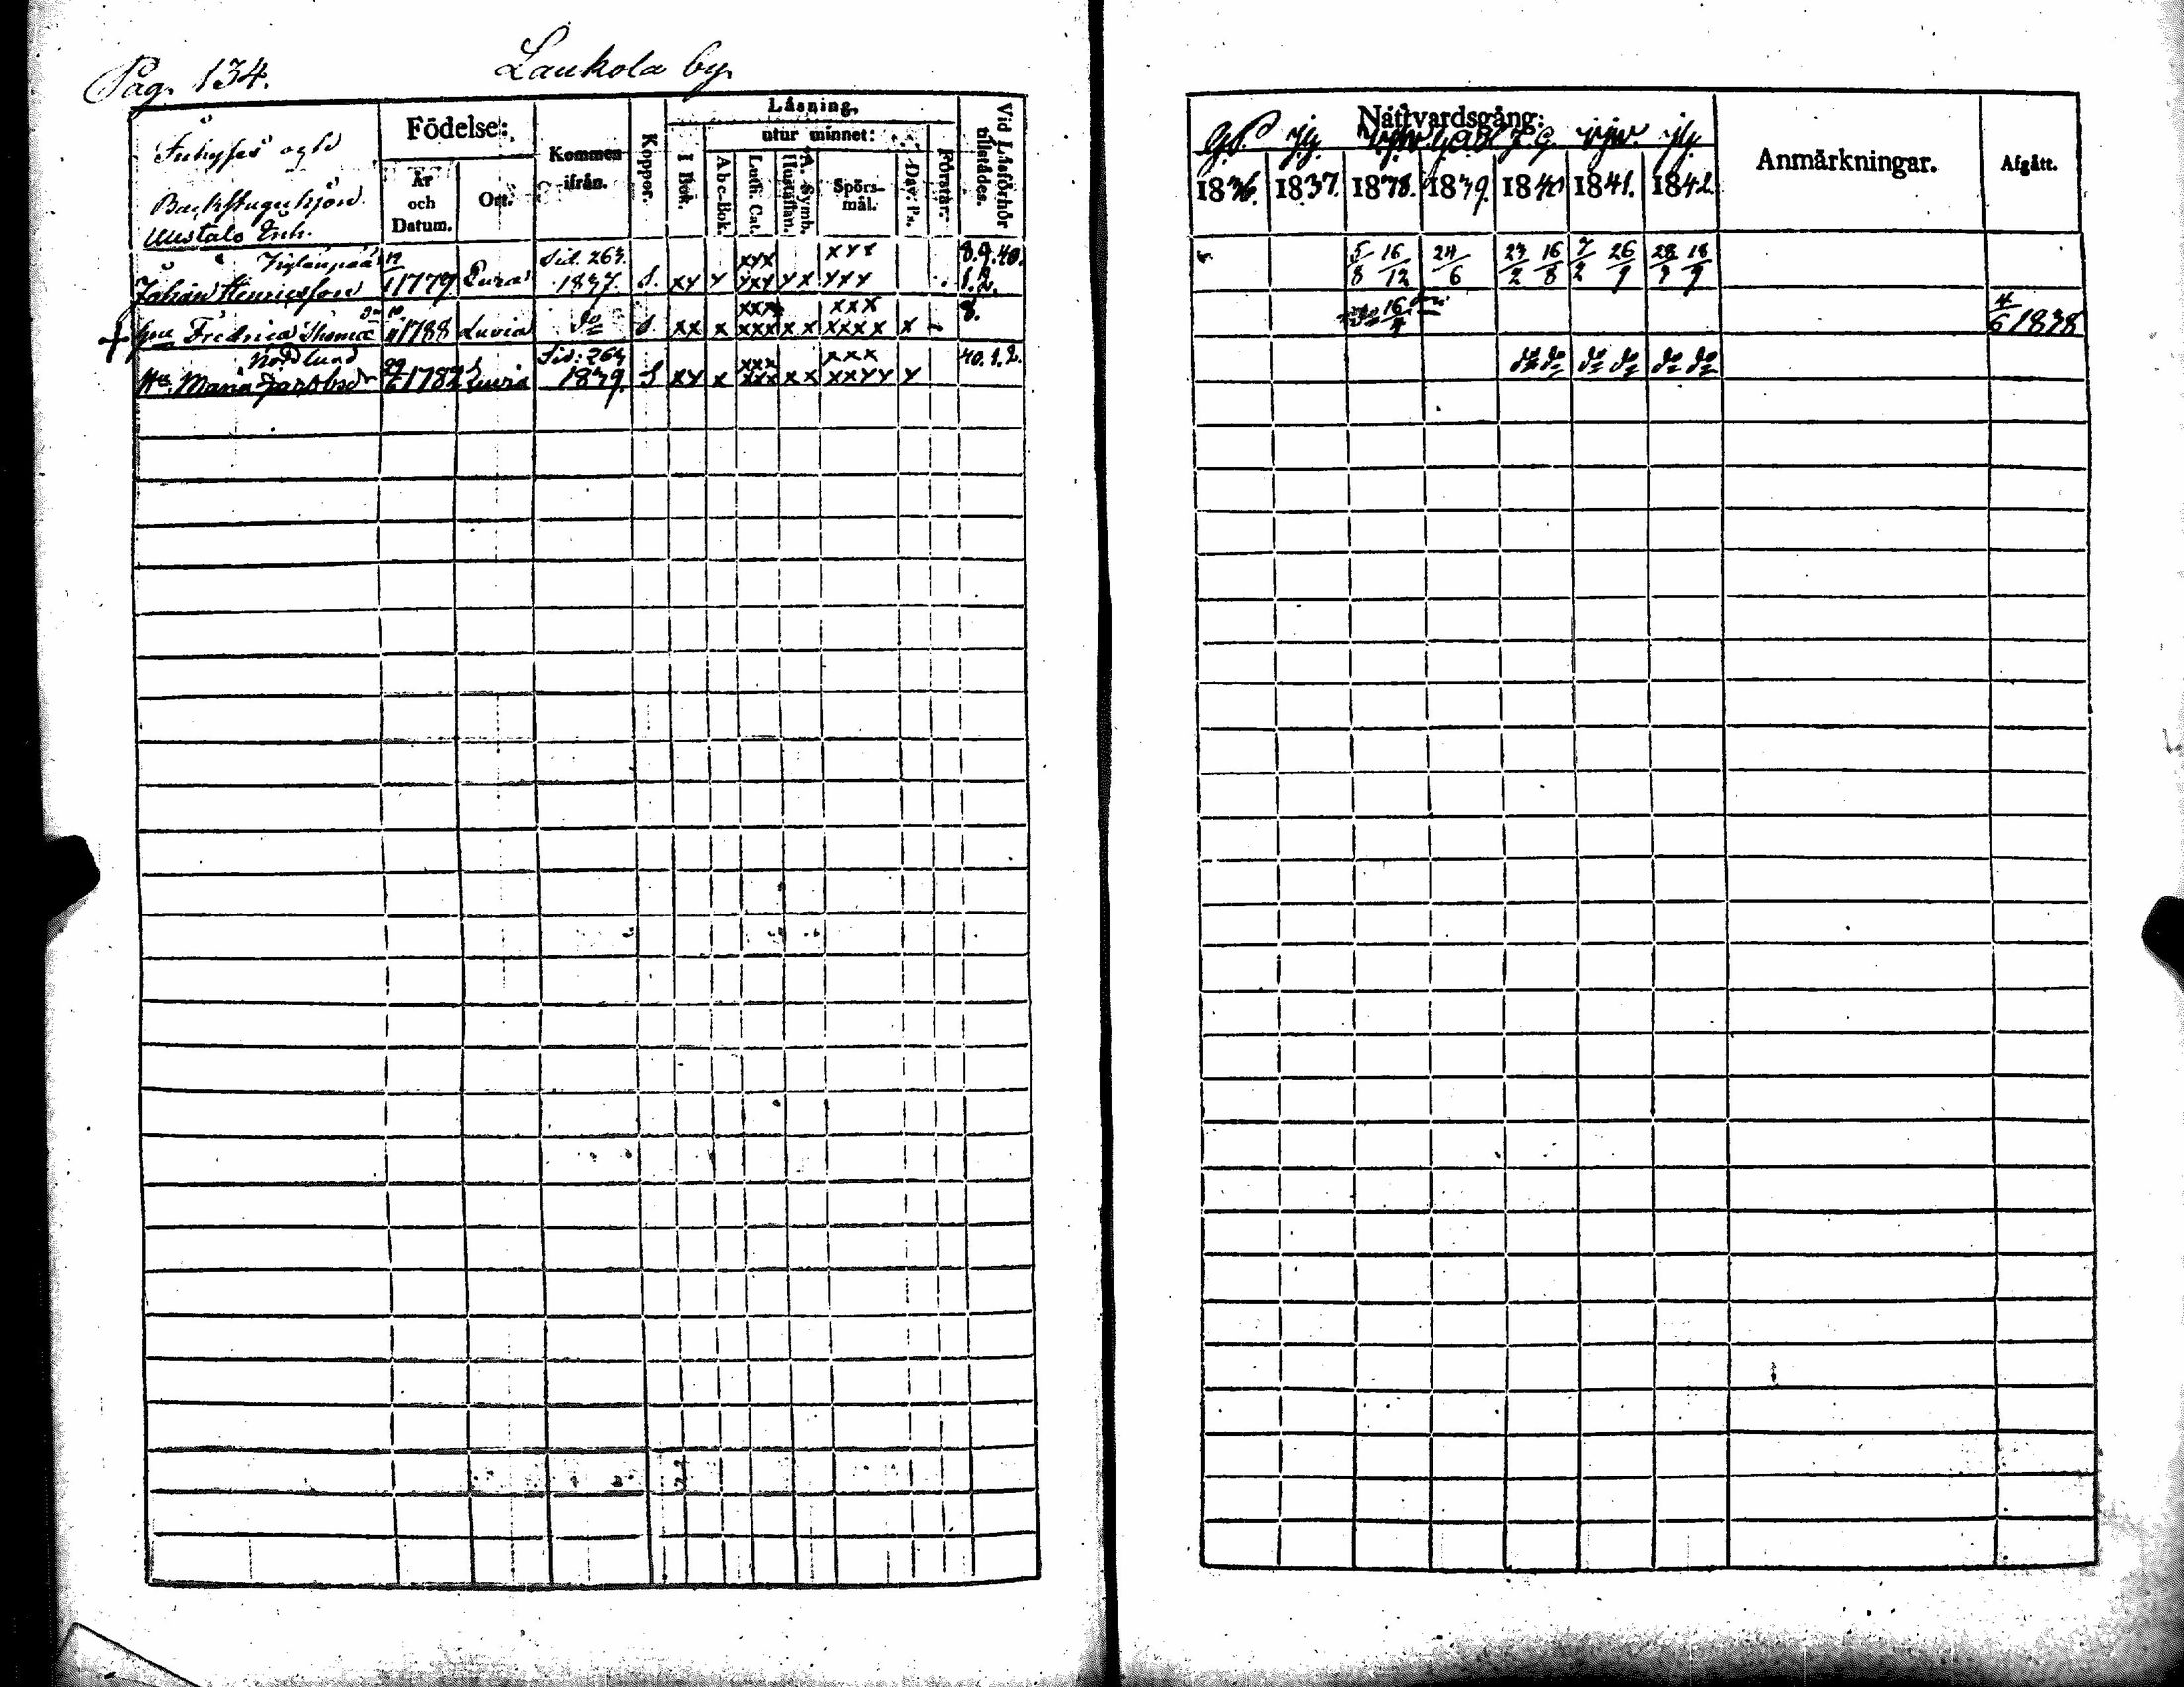 Pag. 134. Laukola by.
Inhyses och
Backstuguhjon
Uustalo Enh.
Födelse:
År och Datum.
Ort.
Kommen ifrån.
Koppor.
Läsning.
utur minnet:
I Bok.
A b c-Bok.
Luth. Cat.
A. Symb. Hustaflan.
Spörs- mål.
Dav: Ps.
Förstår:
Vid Läsförhör tillstädes.
Nattvardsgång:
1836. 1837. 1838. 1839. 1840 1841. 1842.
Anmärkningar.
Afgått.
Sid. 263. xxx xxx 8.9.40.
Johan Henricsson 1779 Eura 1837. S. xx x xxx xx xxx 1.2. 5/8 16/12 24/6 23/2 16/8 7/2 26/9 28/3 18/9
xxx xxx 8.
+ Hu Fredrica Thomæ 1788 Luvia do S xx x xxx xx xxxx x 4/6 1838
Nordlund Sid: 263 xxx xxx 40.1.2.
Hu Maria Jacobsdr 1782 Luvia 1839. S xx x xxx xx xxxx x do do do do do do